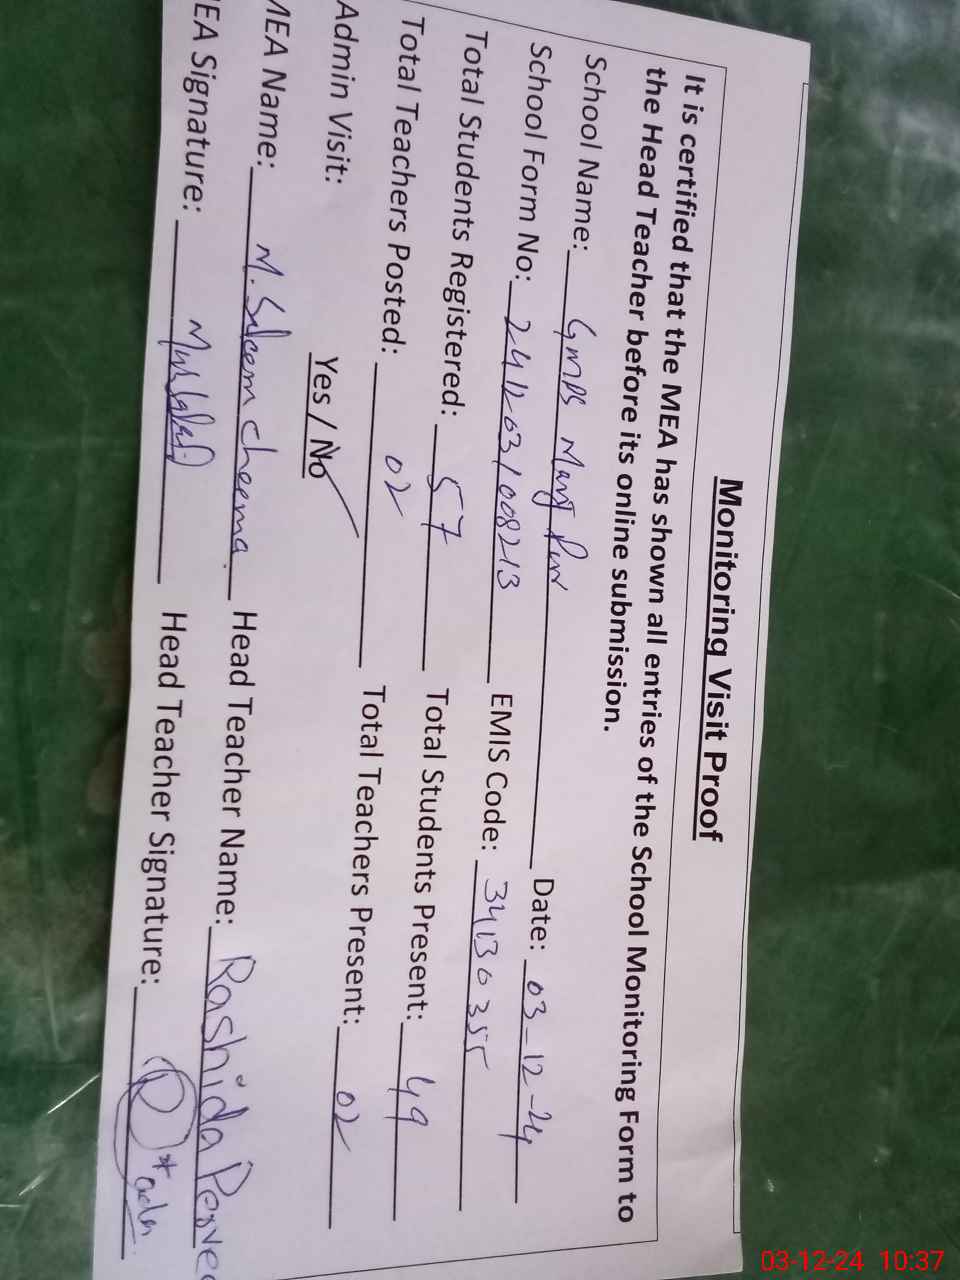 Monitoring Visit Proof
It is certified that the MEA has shown all entries of the School Monitoring Form to
the Head Teacher before its online submission.
School Name: GMPS Date: 03-12-24
School Form No: 241203/008213 EMIS Code: 34130355
Total Students Registered: 57 Total Students Present: 49
Total Teachers Posted: 02 Total Teachers Present: 02
Admin Visit: Yes / No
MEA Name: M. Saleem Cheema. Head Teacher Name: Rashida Perve
EA Signature: Head Teacher Signature:
03-12-24 10:37